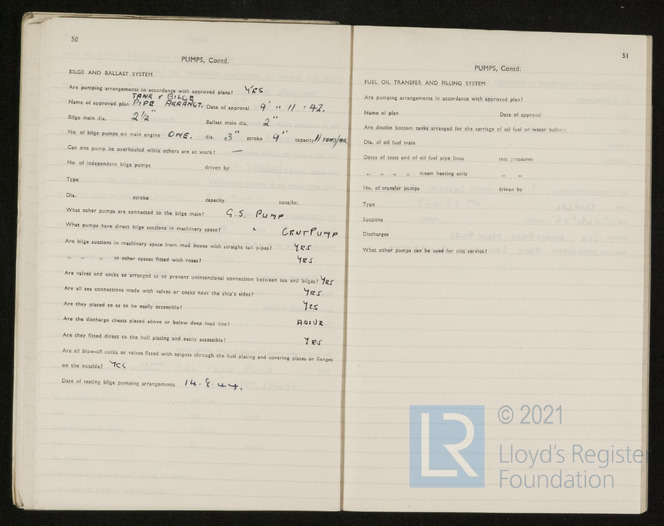 50
PUMPS, Contd.
BILGE AND BALLAST SYSTEM
Are pumping arrangements in accordance with approved plans? YES
TANK & BILGE
Name of approved plan PIPE ARRANGT. Date of approval 9 " 11 '42.
Bilge main dia. 2½" Ballast main dia. 2"
No. of bilge pumps on main engine ONE. dia. 3" stroke 9" capacity 11 TONS/HR
Can one pump be overhauled while others are at work? —
No. of independent bilge pumps driven by
Type
Dia. stroke capacity tons/hr.
What other pumps are connected to the bilge main? G.S. PUMP
What pumps have direct bilge suctions in machinery space? " CENT PUMP
Are bilge suctions in machinery space from mud boxes with straight tail pipes? YES
" " " in other spaces fitted with roses? YES
Are valves and cocks so arranged as to prevent unintentional connection between sea and bilges? YES
Are all sea connections made with valves or cocks next the ship's sides? YES
Are they placed so as to be easily accessible? YES
Are the discharge chests placed above or below deep load line? ABOVE
Are they fitted direct to the hull plating and easily accessible? YES
Are all blow-off cocks or valves fitted with spigots through the hull plating and covering plates or flanges
on the outside? YES
Date of testing bilge pumping arrangements 14.8.44.
51
PUMPS, Contd.
FUEL OIL TRANSFER AND FILLING SYSTEM
Are pumping arrangements in accordance with approved plan?
Name of plan Date of approval
Are double bottom tanks arranged for the carriage of oil fuel or water ballast?
Dia. of oil fuel main
Dates of tests and of oil fuel pipe lines test pressures
" " " " steam heating coils " "
No. of transfer pumps driven by
Type
Suctions
Discharges
What other pumps can be used for this service?
LR © 2021
Lloyd's Register
Foundation